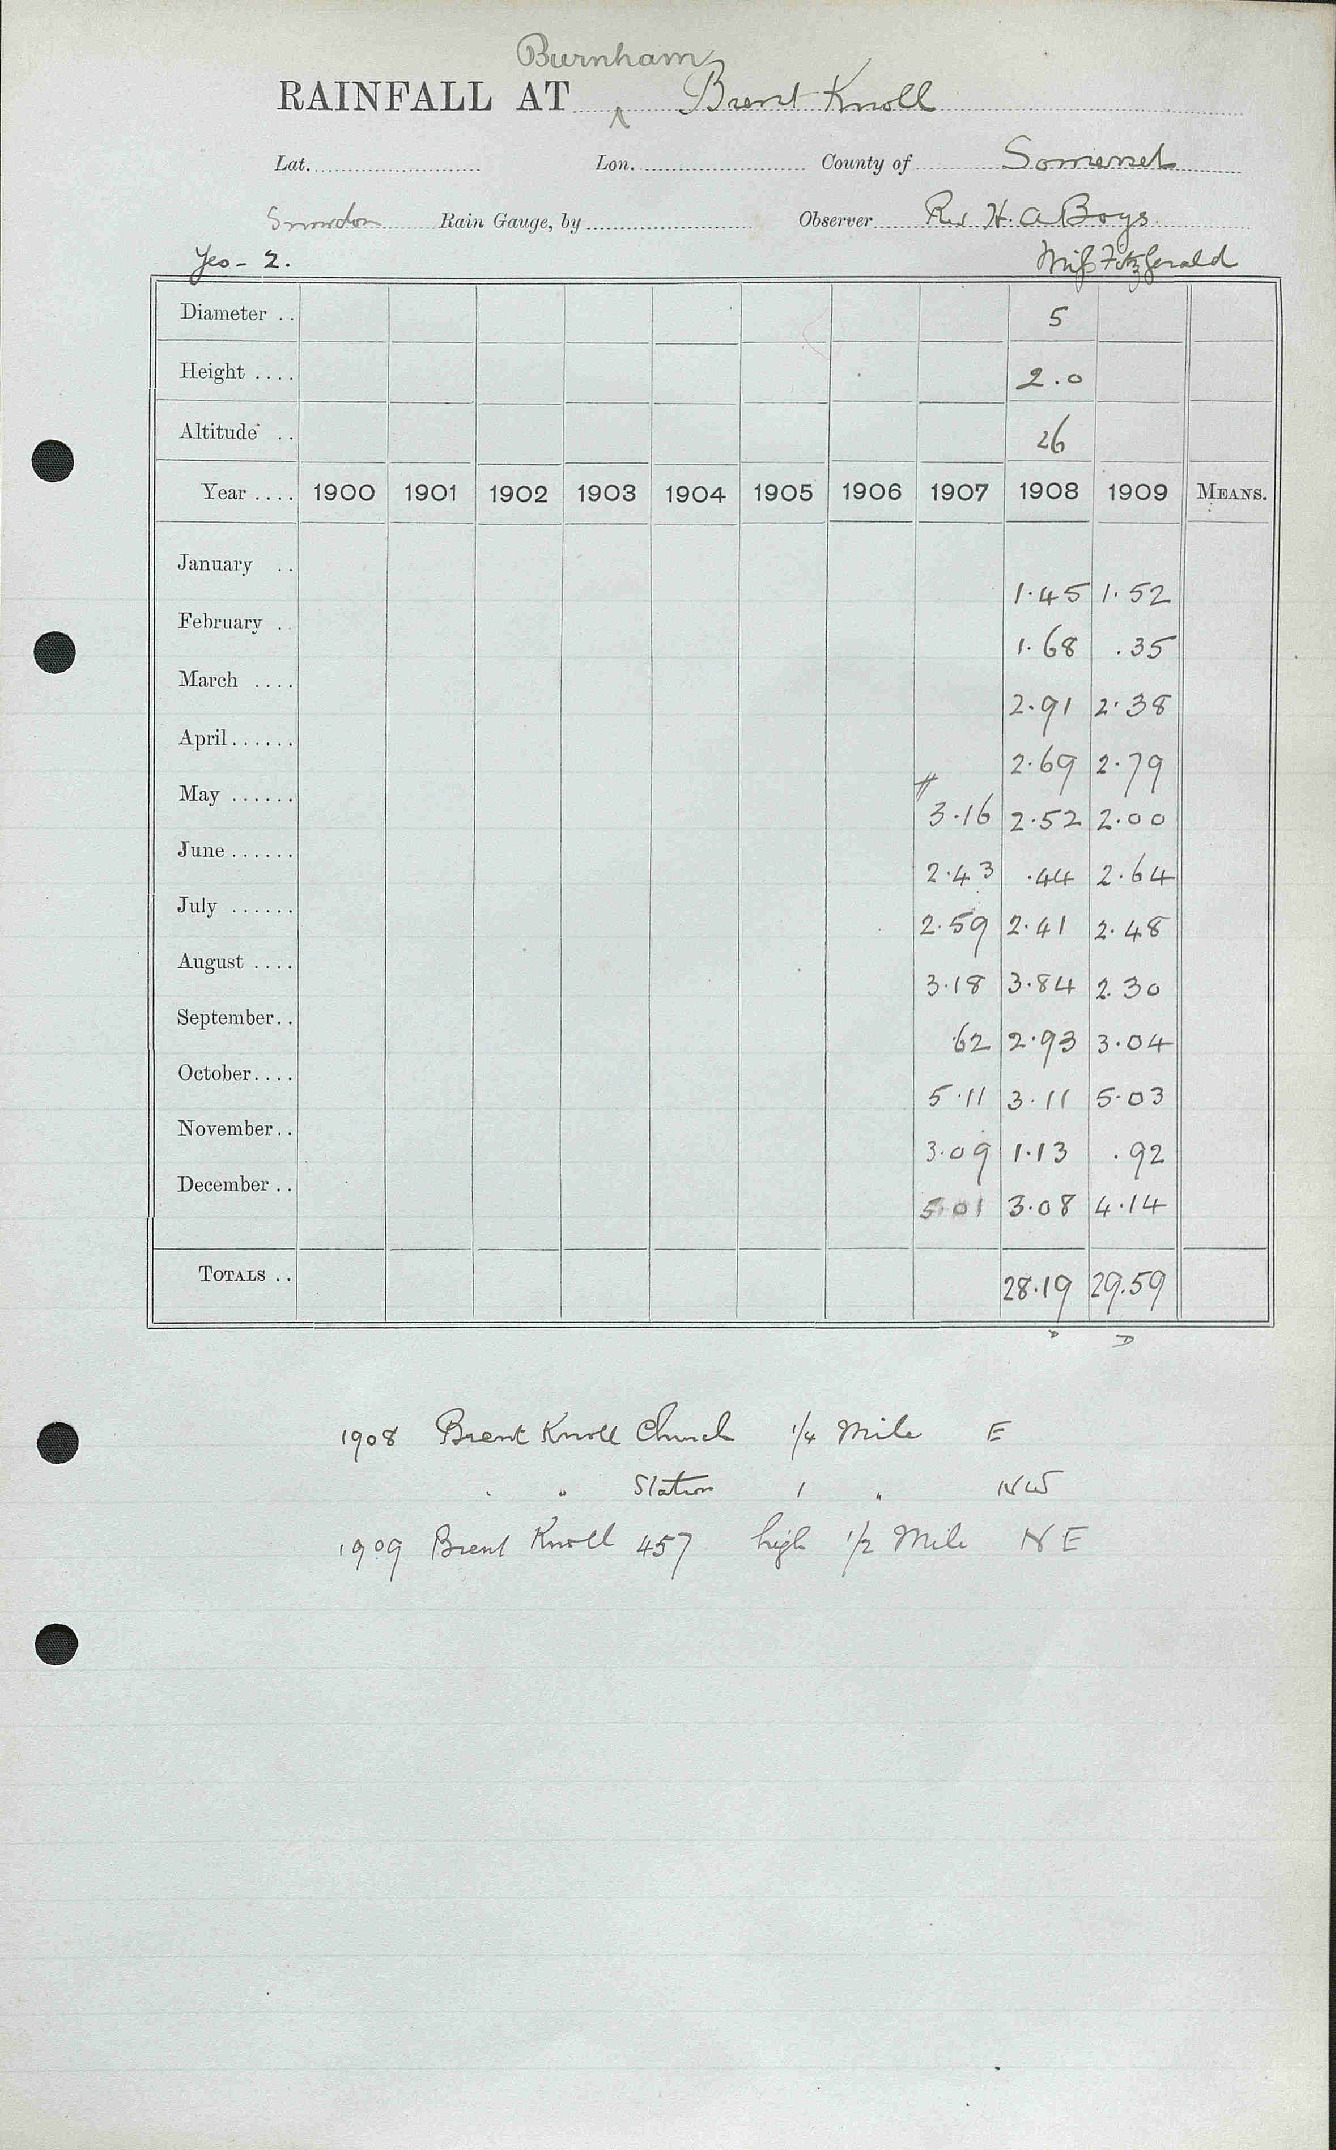 Burnham
RAINFALL AT ^ Brent Knoll
Lat. Lon. County of Somerset
Snowdon Rain Gauge, by Observer Rev H. A Boys
Yes - 2. Miss Fitzgerald
Diameter .. 5
Height .... 2.0
Altitude .. 26
Year .... 1900 1901 1902 1903 1904 1905 1906 1907 1908 1909 MEANS.
January .. 1.45 1.52
February .. 1.68 .35
March .... 2.91 2.38
April...... 2.69 2.79
May ...... 3.16 2.52 2.00
June ...... 2.43 .44 2.64
July ...... 2.59 2.41 2.48
August .... 3.18 3.84 2.30
September.. .62 2.93 3.04
October.... 5.11 3.11 5.03
November.. 3.09 1.13 .92
December .. 5.01 3.08 4.14
TOTALS .. 28.19 29.59
D D
1908 Brent Knoll Church 1/4 Mile E
" " Station 1 " NW
1909 Brent Knoll 457 high 1/2 Mile NE